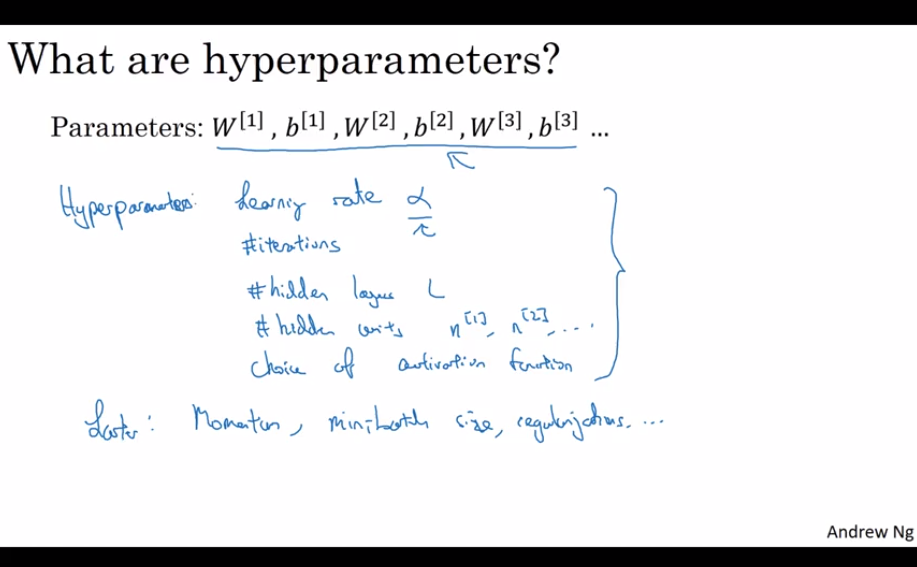 What are hyperparameters?
Parameters: W[1] , b[1] , W[2] , b[2] , W[3] , b[3] ...
Hyperparameters: Learning rate α
#iterations
#hidden layers L
# hidden units n[1], n[2], ....
Choice of activation function
Later: Momentum, minibatch size, regularizations, ...
Andrew Ng